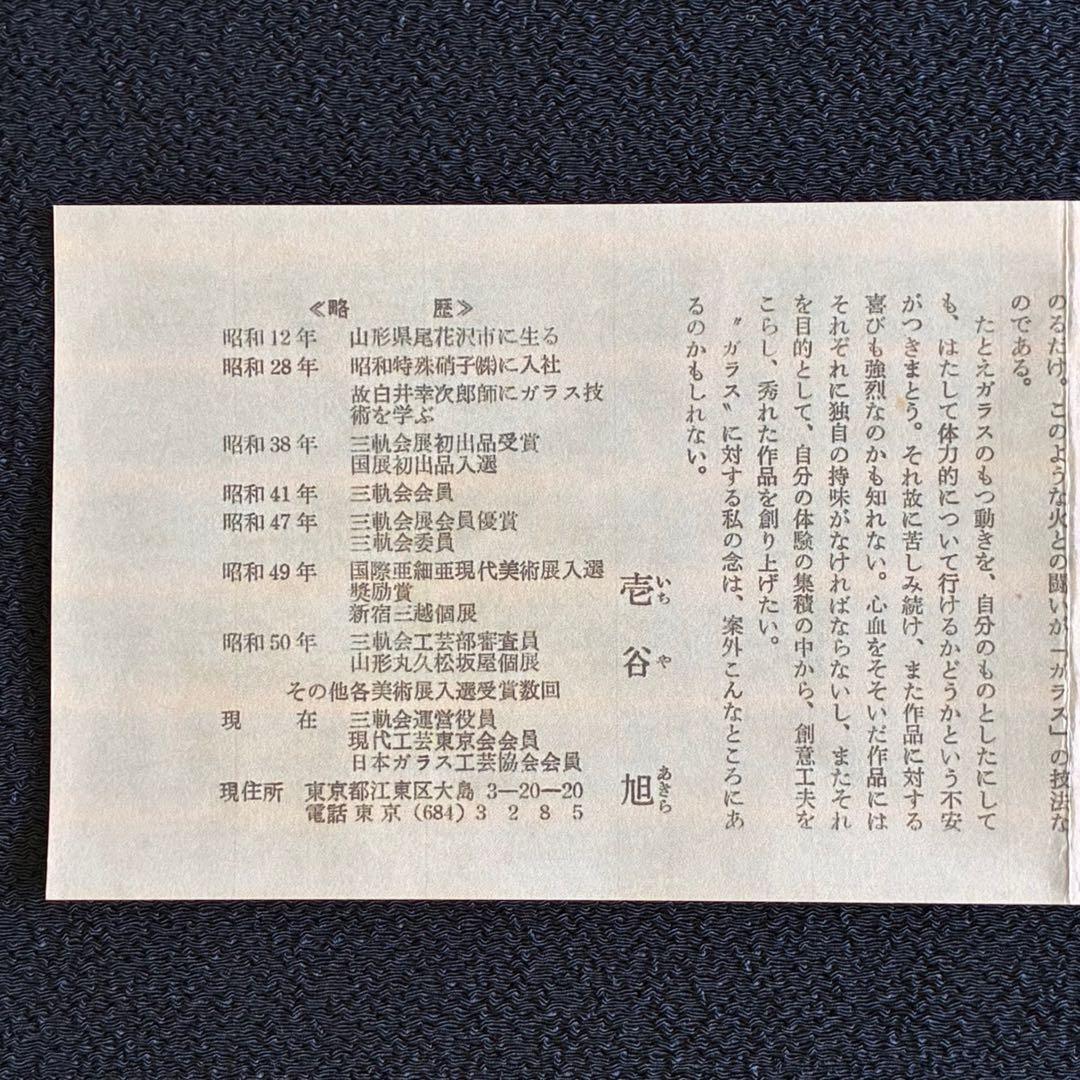 のるだけ。このような火との闘いが「ガラス」の技法な
のである。
たとえガラスのもつ動きを、自分のものとしたにして
も、はたして体力的について行けるかどうかという不安
がつきまとう。それ故に苦しみ続け、また作品に対する
喜びも強烈なのかも知れない。心血をそそいだ作品には
それぞれに独自の持味がなければならないし、またそれ
を目的として、自分の体験の集積の中から、創意工夫を
こらし、秀れた作品を創り上げたい。
〝ガラス〟に対する私の念は、案外こんなところにあ
るのかもしれない。
壱谷 旭
いち や あきら
≪略 歴≫
昭和12年 山形県尾花沢市に生る
昭和28年 昭和特殊硝子㈱に入社
故白井幸次郎師にガラス技
術を学ぶ
昭和38年 三軌会展初出品受賞
国展初出品入選
昭和41年 三軌会会員
昭和47年 三軌会展会員優賞
三軌会委員
昭和49年 国際亜細亜現代美術展入選
奨励賞
新宿三越個展
昭和50年 三軌会工芸部審査員
山形丸久松坂屋個展
その他各美術展入選受賞数回
現 在 三軌会運営役員
現代工芸東京会会員
日本ガラス工芸協会会員
現住所 東京都江東区大島 3―20―20
電話 東京 (684) 3 2 8 5